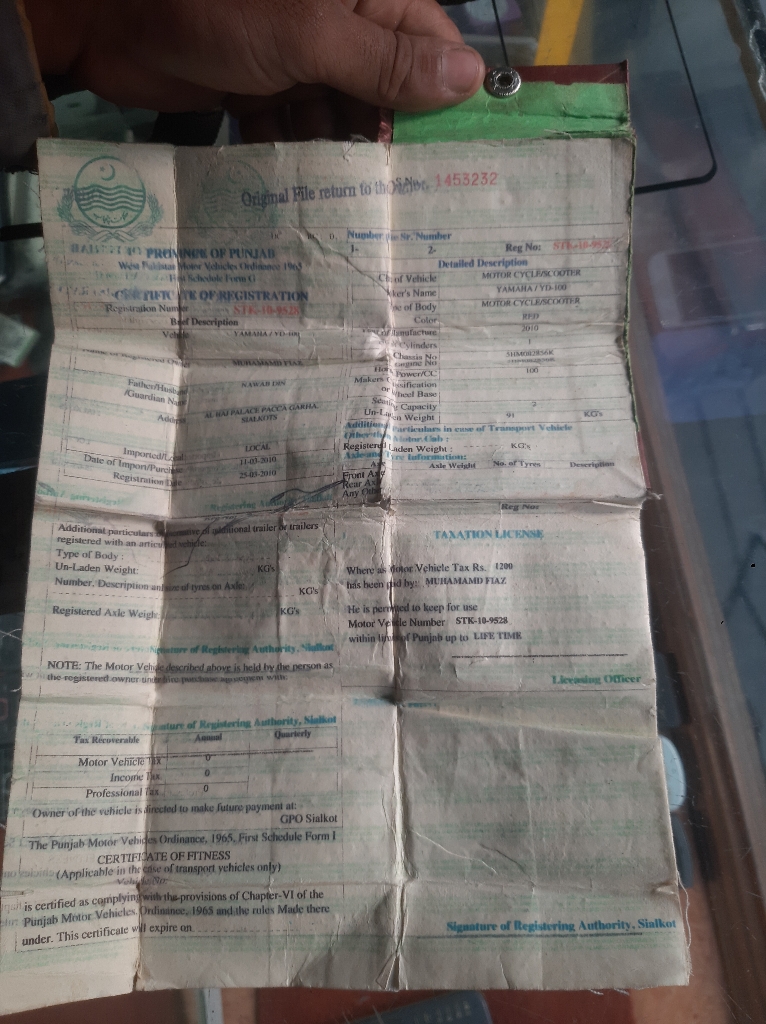 Original File return to the
1453232
Number
Sr. Number
1-
2-
Reg No: STK-10-9528
PROVINCE OF PUNJAB
West Pakistan Motor Vehicles Ordinance 1965
First Schedule Form G
CERTIFICATE OF REGISTRATION
Registration Number STK-10-9528
Breif Description
Vehicle YAMAHA / YD-100
MUHAMAMD FIAZ
Father/Husb
/Guardian Name
NAWAB DIN
Address
PALACE PACCA GARHA,
SIALKOTS
Imported/Local LOCAL
Date of Import/Purch 11-03-2010
Registration Date 25-03-2010
Detailed Description
of Vehicle MOTOR CYCLE/SCOOTER
ker's Name YAMAHA / YD-100
e of Body MOTOR CYCLE/SCOOTER
Color RED
Manufacture 2010
Cylinders 1
Chassis No
Engine No
Horse Power/CC 100
Makers Classification
or Wheel Base
Seating Capacity 2
Un-Laden Weight 91 KG's
Additional Particulars in case of Transport Vehicle
Other than Motor Cab :
Registered Laden Weight : KG's
Axle and Tyre Information:
Axle Axle Weight No. of Tyres Description
Front Axle
Rear Ax
Any Othe
Registering Authority,
Reg No:
Additional particulars in case of additional trailer or trailers
registered with an articulated vehicle:
Type of Body :
Un-Laden Weight: KG's
Number, Description and size of tyres on Axle:
KG's
Registered Axle Weigh KG's
Signature of Registering Authority, Sialkot
NOTE: The Motor Vehicle described above is held by the person as
the registered owner under hire purchase agreement with:
TAXATION LICENSE
Where as Motor Vehicle Tax Rs. 1200
has been paid by: MUHAMAMD FIAZ
He is permitted to keep for use
Motor Vehicle Number STK-10-9528
within limits of Punjab up to LIFE TIME
Licensing Officer
Signature of Registering Authority, Sialkot
Tax Recoverable Annual Quarterly
Motor Vehicle Tax 0
Income Tax 0
Professional Tax 0
Owner of the vehicle is directed to make future payment at:
GPO Sialkot
The Punjab Motor Vehicles Ordinance, 1965, First Schedule Form I
CERTIFICATE OF FITNESS
(Applicable in the case of transport vehicles only)
Vehicle No:
is certified as complying with the provisions of Chapter-VI of the
Punjab Motor Vehicles Ordinance, 1965 and the rules Made there
under. This certificate will expire on
Signature of Registering Authority, Sialkot